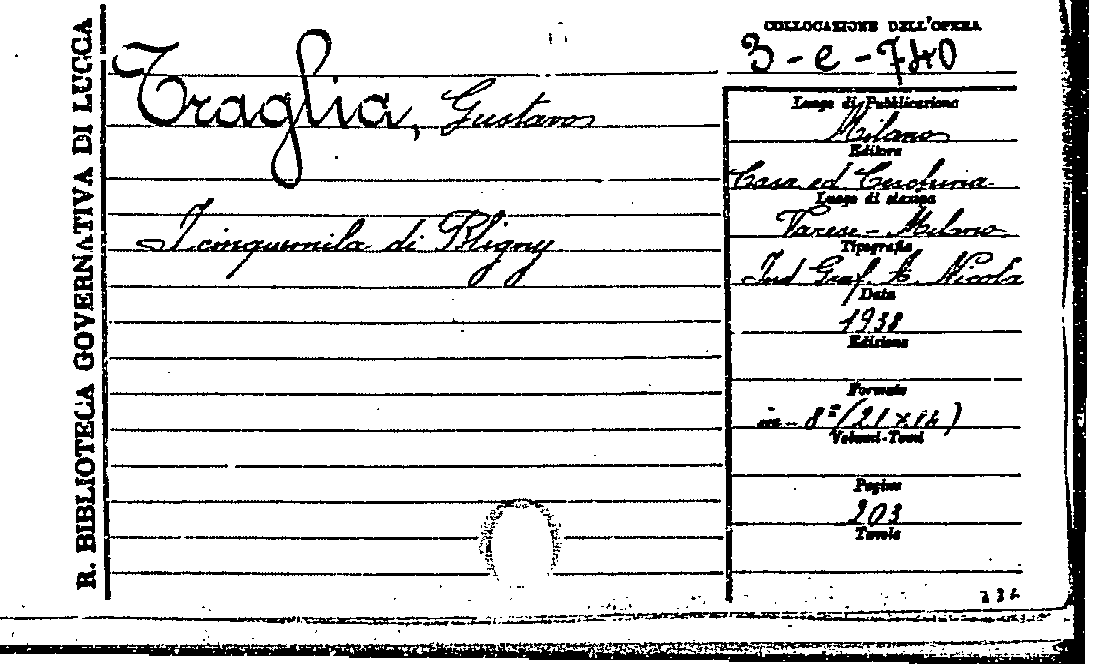 R. BIBLIOTECA GOVERNATIVA DI LUCCA
Traglia, Gustavo
I cinquemila di Bligny
COLLOCAZIONE DELL'OPERA
3-e-740
Luogo di Pubblicazione
Milano
Editore
Casa ed. Ceschina
Luogo di stampa
Varese - Milano
Tipografia
Ind Graf. A. Nicola
Data
1938
Edizione
Formato
in-8° (21 x 14)
Volumi-Tomi
Pagine
203
Tavole